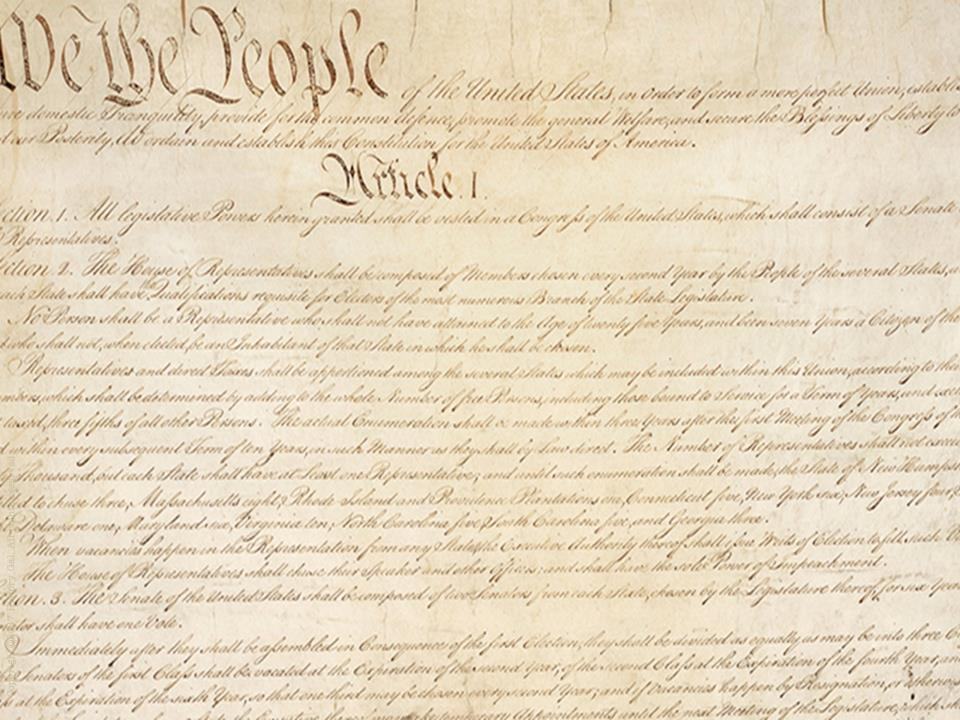 We the People of the United States, in order to form a more perfect Union, establis
domestic Tranquility, provide for the common defence, promote the general Welfare, and secure the Blessings of Liberty to
our Posterity, do ordain and establish this Constitution for the United States of America.
Article. I.
ction. 1. All legislative Powers herein granted shall be vested in a Congress of the United States, which shall consist of a Senate
Representatives.
ection. 2. The House of Representatives shall be composed of Members chosen every second Year by the People of the several States, a
each State shall have Qualifications requisite for Electors of the most numerous Branch of the State Legislature.
No Person shall be a Representative who shall not have attained to the Age of twenty five Years, and been seven Years a Citizen of the
who shall not, when elected, be an Inhabitant of that State in which he shall be chosen.
Representatives and direct Taxes shall be apportioned among the several States which may be included within this Union, according to their
mbers, which shall be determined by adding to the whole Number of free Persons, including those bound to Service for a Term of Years, and
taxed, three fifths of all other Persons. The actual Enumeration shall be made within three Years after the first Meeting of the Congress of
within every subsequent Term of ten Years, in such Manner as they shall by Law direct. The Number of Representatives shall not exceed
Thousand, but each State shall have at Least one Representative; and until such enumeration shall be made, the State of New Hampsh
to chuse three, Massachusetts eight, Rhode Island and Providence Plantations one, Connecticut five, New York six, New Jersey four,
Delaware one, Maryland six, Virginia ten, North Carolina five, South Carolina five, and Georgia three.
When vacancies happen in the Representation from any State, the Executive Authority thereof shall issue Writs of Election to fill such
The House of Representatives shall chuse their Speaker and other Officers; and shall have the sole Power of Impeachment.
ction. 3. The Senate of the United States shall be composed of two Senators from each State, chosen by the Legislature thereof, for six Years
nator shall have one Vote.
Immediately after they shall be assembled in Consequence of the first Election, they shall be divided as equally as may be into three
Senators of the first Class shall be vacated at the Expiration of the second Year, of the second Class at the Expiration of the fourth Year, and
at the Expiration of the sixth Year, so that one third may be chosen every second Year; and if Vacancies happen by Resignation, or otherwise
temporary Appointments until the next Meeting of the Legislature, which